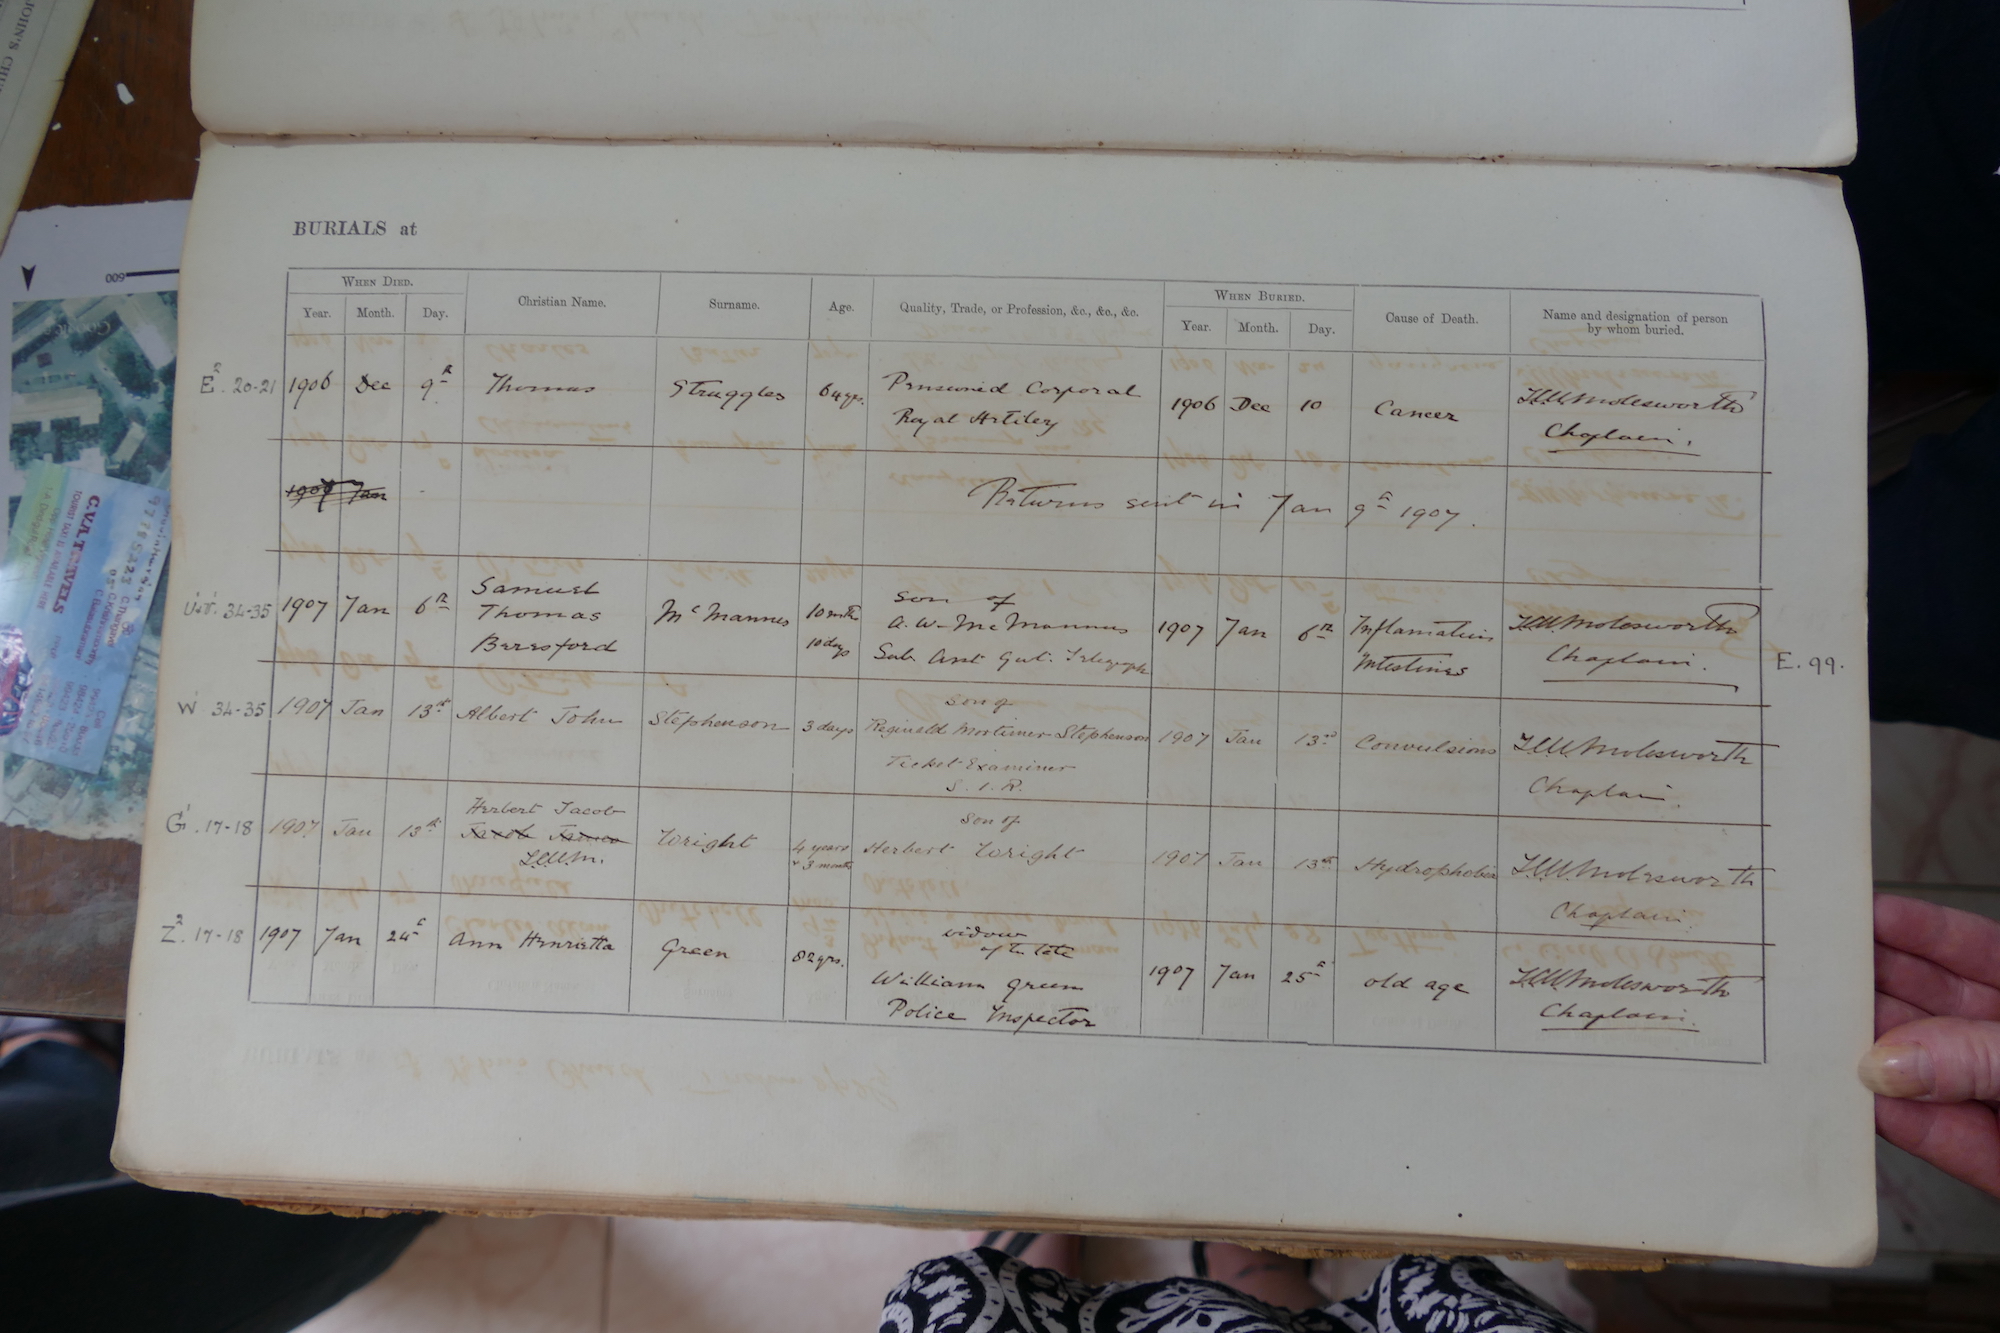 BURIALS at
When Died.
Christian Name.
Surname.
Age.
Quality, Trade, or Profession, &c., &c., &c.
When Buried.
Cause of Death.
Name and designation of person
by whom buried.
Year. Month. Day.
Year. Month. Day.
E². 20-21 1906 Dec 9th Thomas Struggles 64 yrs. Pensioned Corporal 1906 Dec 10 Cancer Molesworth
Royal Artilery Chaplain.
1907 Jan
Returns sent in Jan 9th 1907.
34-35 1907 Jan 6th Samuel McMannus 10 mths son of 1907 Jan 6th Inflamation Molesworth
Thomas 10 days A. W. McMannus Intestines Chaplain.
Beresford Sub. Asst Govt. Telegraph
E. 99.
W' 34-35 1907 Jan 13th Albert John Stephenson 3 days son of 1907 Jan 13th Convulsions Molesworth
Reginald Mortimer Stephenson Chaplain.
Ticket Examiner
S. I. R.
G'. 17-18 1907 Jan 13th Herbert Jacob Wright 4 years son of 1907 Jan 13th Hydrophobia Molesworth
Jacob James & 3 months Herbert Wright Chaplain
Z². 17-18 1907 Jan 24th Ann Henrietta Green 82 yrs. widow 1907 Jan 25th old age Molesworth
of the late Chaplain.
William Green
Police Inspector
JOHN'S
600
Google
C.V.A. TRAVELS